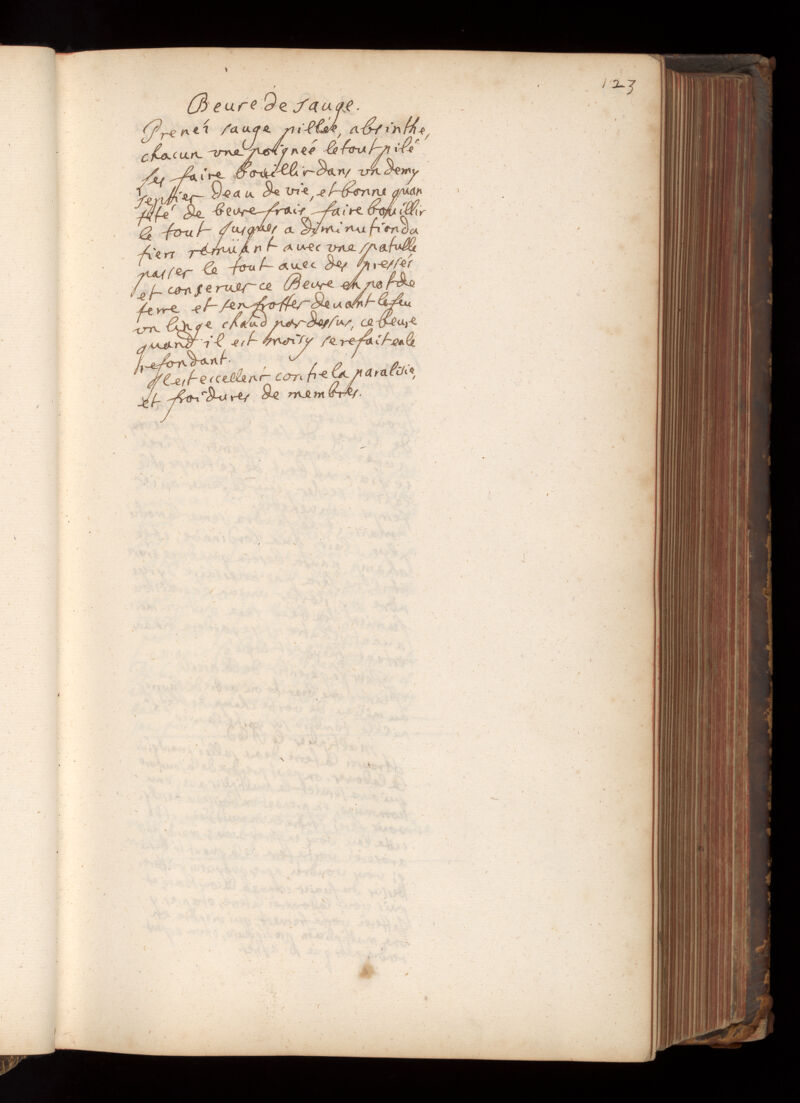 123
Beure de sauge.
Prenéz sauge pillée, absinthe,
chacun vne poignée le tout pilé
les faire bouillir dans vn demy
septier deau de vie, et bonne quan
tité de beure frais faire bouillir
le tout jusques a diminution du
tiers rémuant auec vne spatulle
passer le tout auec des presses
et conseruer ce Beure en pot de
terre et sen frotter deuant le feu
vn linge chaud par dessus, ce beure
quand il est moisy se refait en le
refondant.
Il est eccellent contre la paralisie,
et froidures de membres.